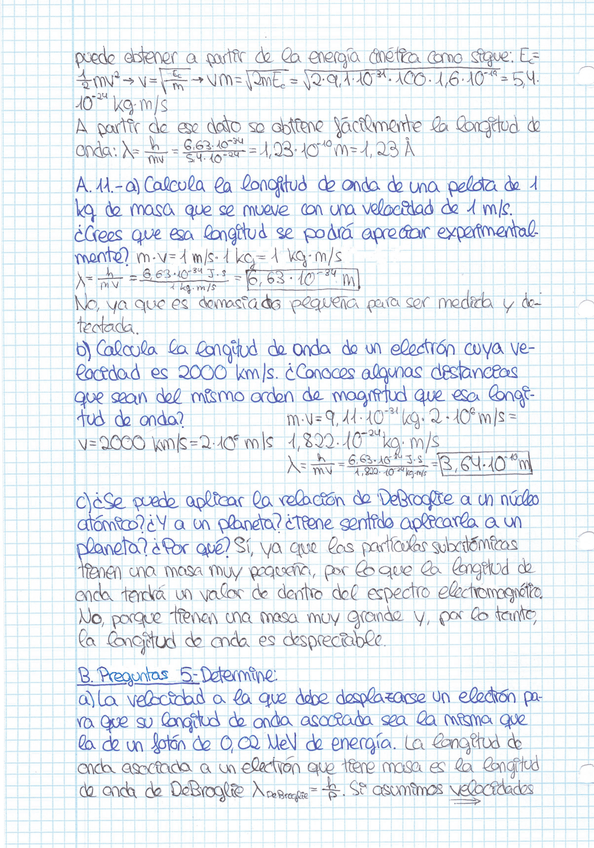 puede obtener a partir de la energía cinética como sigue: Ec=
1/2 mv² → v=√(Ec/m) → vm=√2mEc=√2·9,1·10⁻³¹·100·1,6·10⁻¹⁹=5,4·
10⁻²⁴ kg·m/s
A partir de ese dato se obtiene fácilmente la longitud de
onda: λ=h/mv=6,63·10⁻³⁴/5,4·10⁻²⁴=1,23·10⁻¹⁰m=1,23 Å
A.11.-a) Calcula la longitud de onda de una pelota de 1
kg de masa que se mueve con una velocidad de 1 m/s.
¿Crees que esa longitud se podrá apreciar experimental-
mente? m·v=1 m/s·1 kg=1 kg·m/s
λ=h/mv=6,63·10⁻³⁴ J·s/1 kg·m/s=6,63·10⁻³⁴ m
No, ya que es demasiado pequeña para ser medida y de-
tectada.
b) Calcula la longitud de onda de un electrón cuya ve-
locidad es 2000 km/s. ¿Conoces algunas distancias
que sean del mismo orden de magnitud que esa longi-
tud de onda? m·v=9,11·10⁻³¹ kg·2·10⁶ m/s=
v=2000 km/s=2·10⁶ m/s 1,822·10⁻²⁴ kg·m/s
λ=h/mv=6,63·10⁻³⁴ J·s/1,822·10⁻²⁴ kg·m/s=3,64·10⁻¹⁰ m
c) ¿Se puede aplicar la relación de DeBroglie a un núcleo
atómico? ¿Y a un planeta? ¿Tiene sentido aplicarla a un
planeta? ¿Por qué? Sí, ya que las partículas subatómicas
tienen una masa muy pequeña, por lo que la longitud de
onda tendrá un valor de dentro del espectro electromagnético.
No, porque tienen una masa muy grande y, por lo tanto,
la longitud de onda es despreciable.
B. Preguntas 5-Determine:
a) La velocidad a la que debe desplazarse un electrón pa-
ra que su longitud de onda asociada sea la misma que
la de un fotón de 0,02 MeV de energía. La longitud de
onda asociada a un electrón que tiene masa es la longitud
de onda de DeBroglie λDeBroglie=h/p. Si asumimos velocidades